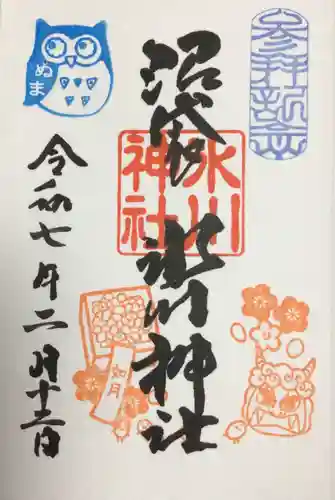 参拝記念
沼袋 氷川神社
氷川神社
ぬま
令和七年二月十三日
如月